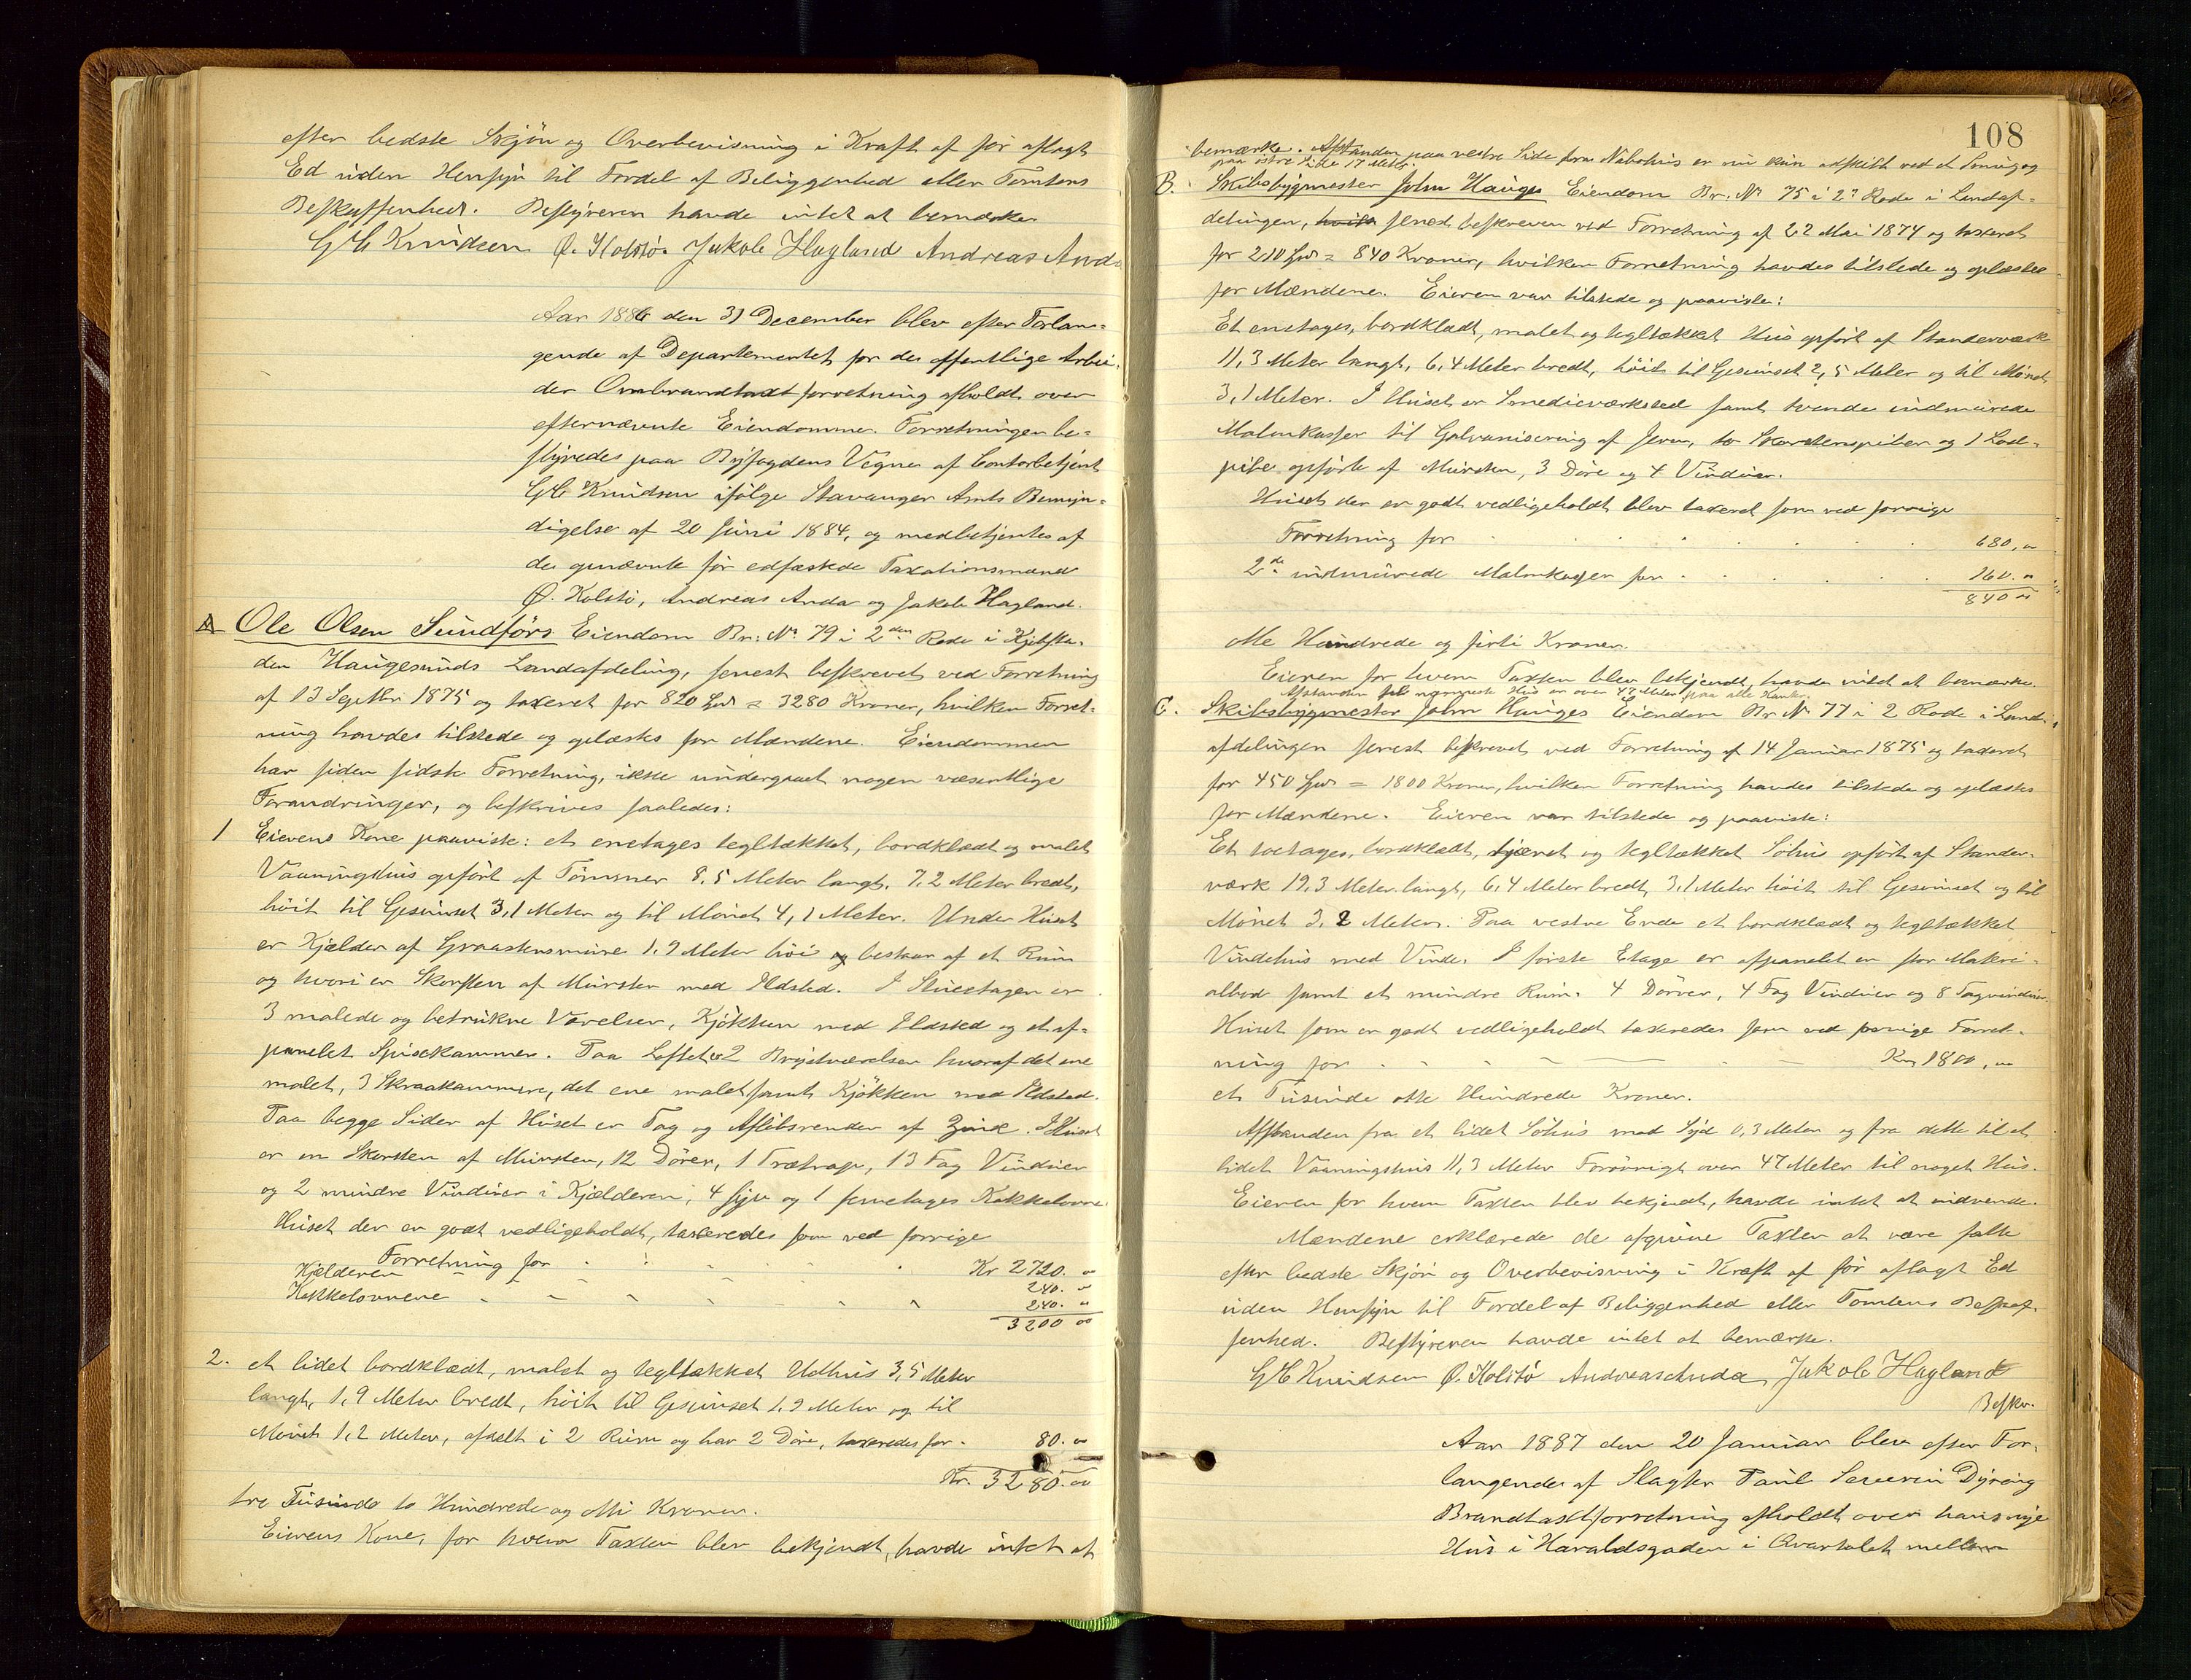 efter bedste Skjøn og Overbevisning i Kraft af før aflagt
Ed uden Hensyn til Fordel af Beliggenhed eller Tomtens
Beskaffenhed. Bestyreren havde intet at bemærke.
G C Knudsen Ø. Kolstø. Jakob Hagland Andreas Anda
Aar 1886 den 31 December blev efter Forlan-
gende af Departementet for det offentlige Arbei-
der Ombrandtaxtforretning afholdt over
efternævnte Eiendomme. Forretningen be-
styredes paa Byfogdens Vegne af Contorbetjent
G C Knudsen ifølge Stavanger Amts Bemyn-
digelse af 20 Juni 1884, og medbetjentes af
de opnævnte før edfæstede Taxationsmænd
Ø. Kolstø, Andreas Anda og Jakob Hagland.
A Ole Olsen Sundførs Eiendom Br. No 79 i 2den Rode i Kjøbsta-
den Haugesunds Landafdeling, senest beskrevet ved Forretning
af 13 Septbr 1875 og taxeret for 820 Spd = 3280 Kroner, hvilken Forret-
ning havdes tilstede og oplæstes for Mændene. Eiendommen
har siden sidste Forretning, ikke undergaaet nogen væsentlige
Forandringer, og beskrives saaledes:
1 Eierens Kone paaviste: et enetages tegltækket, bordklædt og malet
Vaaningshus opført af Tømmer 8,5 Meter langt, 7,2 Meter bredt,
høit til Gesimset 3,1 Meter og til Mønet 4,1 Meter. Under Huset
er Kjælder af Graastensmure 1.9 Meter høi og bestaar af et Rum
og hvori er Skorsten af Mursten med Ildsted. I Stueetagen er
3 malede og betrukne Værelser, Kjøkken med Ildsted og et af-
panelet Spisekammer. Paa Loftet er 2 Brystværelser hvoraf det ene
malet, 3 Skraakammere, det ene malet samt Kjøkken med Ildsted.
Paa begge Sider af Huset er Tag og Afløbsrender af Zink. I Huset
er en Skorsten af Mursten, 12 Døre, 1 Trætrap, 13 Fag Vinduer
og 2 mindre Vinduer i Kjælderen, 4 og 1 femetages Kakkelovne
Huset der er godt vedligeholdt, taxeredes som ved forrige
Forretning for Kr 2720. "
Kjælderen 240. "
Kakkelovnene 240. "
3200 00
2. et lidet bordklædt, malet og tegltækket Udhus 3,5 Meter
langt, 1,9 Meter bredt, høit til Gesimset 1,9 Meter og til
Mønet 1,2 Meter, afdelt i 2 Rum og har 2 Døre, taxeredes for. 80. "
Kr. 3280. 00
tre Tusinde to Hundrede og otti Kroner.
Eierens Kone, for hvem Taxten blev bekjendt, havde intet at
108
bemærke. Afstanden paa vestre Side fra Nabohus er nu kun adskilt ved et Smug og
paa østre Side 17 Meter.
B. Skibsbygmester John Hauges Eiendom Br. No 75 i 2' Rode i Landaf-
delingen, senest beskreven ved Forretning af 22 Mai 1874 og taxeret
for 210 Spd = 840 Kroner, hvilken Forretning havdes tilstede og oplæstes
for Mændene. Eieren var tilstede og paaviste:
Et enetages, bordklædt, malet og tegltækket Hus opført af Standerværk
11,3 Meter langt, 6,4 Meter bredt, høit til Gesimset 2,5 Meter og til Mønet
3,1 Meter. I Huset er Smedieværksted samt tvende indmurede
Malmkasser til Galvanisering af Jern, to Skorstenspiber og 1 Lod-
pibe opførte af Mursten, 3 Døre og 4 Vinduer.
Huset der er godt vedligeholdt blev taxeret som ved forrige
Forretning for 680, "
2de indmurede Malmkasser for 160. "
840 "
otte Hundrede og firti Kroner.
Eieren for hvem Taxten blev bekjendt, havde intet at bemærke.
Afstanden til nærmeste Hus er over 47 Meter paa alle Kanter.
C. Skibsbygmester John Hauges Eiendom Br No 77 i 2 Rode i Land-
afdelingen senest beskrevet ved Forretning af 14 Januar 1875 og taxeret
for 450 Spd = 1800 Kroner, hvilken Forretning havdes tilstede og oplæstes
for Mændene. Eieren var tilstede og paaviste:
Et toetages, bordklædt, tjæret og tegltækket Søhus opført af Stander-
værk 19,3 Meter langt, 6,4 Meter bredt, 3,1 Meter høit til Gesimset og til
Mønet 3,2 Meter. Paa vestre Ende et bordklædt og tegltækket
Vindehus med Vinde. I første Etage er afpanelet en stor Materi-
albod samt et mindre Rum. 4 Dører, 4 Fag Vinduer og 8 Tagvinduer.
Huset som er godt vedligeholdt taxeredes som ved forrige Forret-
ning for Kr 1800, "
et Tusinde otte Hundrede Kroner.
Afstanden fra et lidet Søhus mod Syd 0,3 Meter og fra dette til et
lidet Vaaningshus 11,3 Meter Forøvrigt over 47 Meter til noget Hus.
Eieren for hvem Taxten blev bekjendt, havde intet at indvende.
Mændene erklærede de afgivne Taxter at være satte
efter bedste Skjøn og Overbevisning i Kraft af før aflagt Ed
uden Hensyn til Fordel af Beliggenhed eller Tomtens Beskaf-
fenhed. Bestyreren havde intet at bemærke.
G C Knudsen Ø. Kolstø Andreas Anda Jakob Hagland
Beskr.
Aar 1887 den 20 Januar blev efter For-
langende af Slagter Paul Severin Dyring
Brandtaxtforretning afholdt over hans nye
Hus i Haraldsgaden i Qvartalet mellem